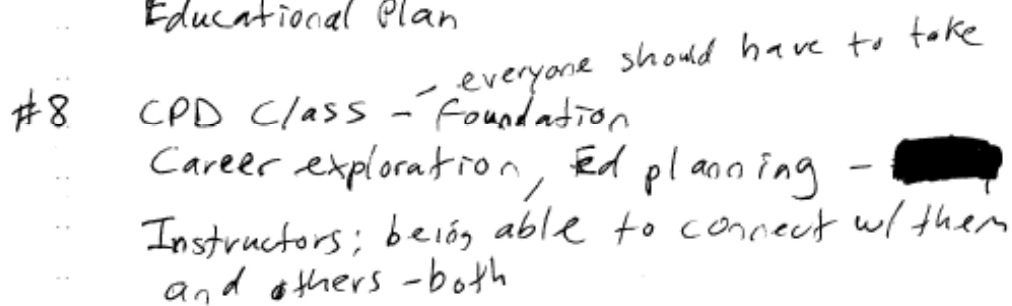 Educational Plan
- everyone should have to take
#8 CPD Class - Foundation
Career exploration, Ed planning -
Instructors; being able to connect w/ them
and others - both